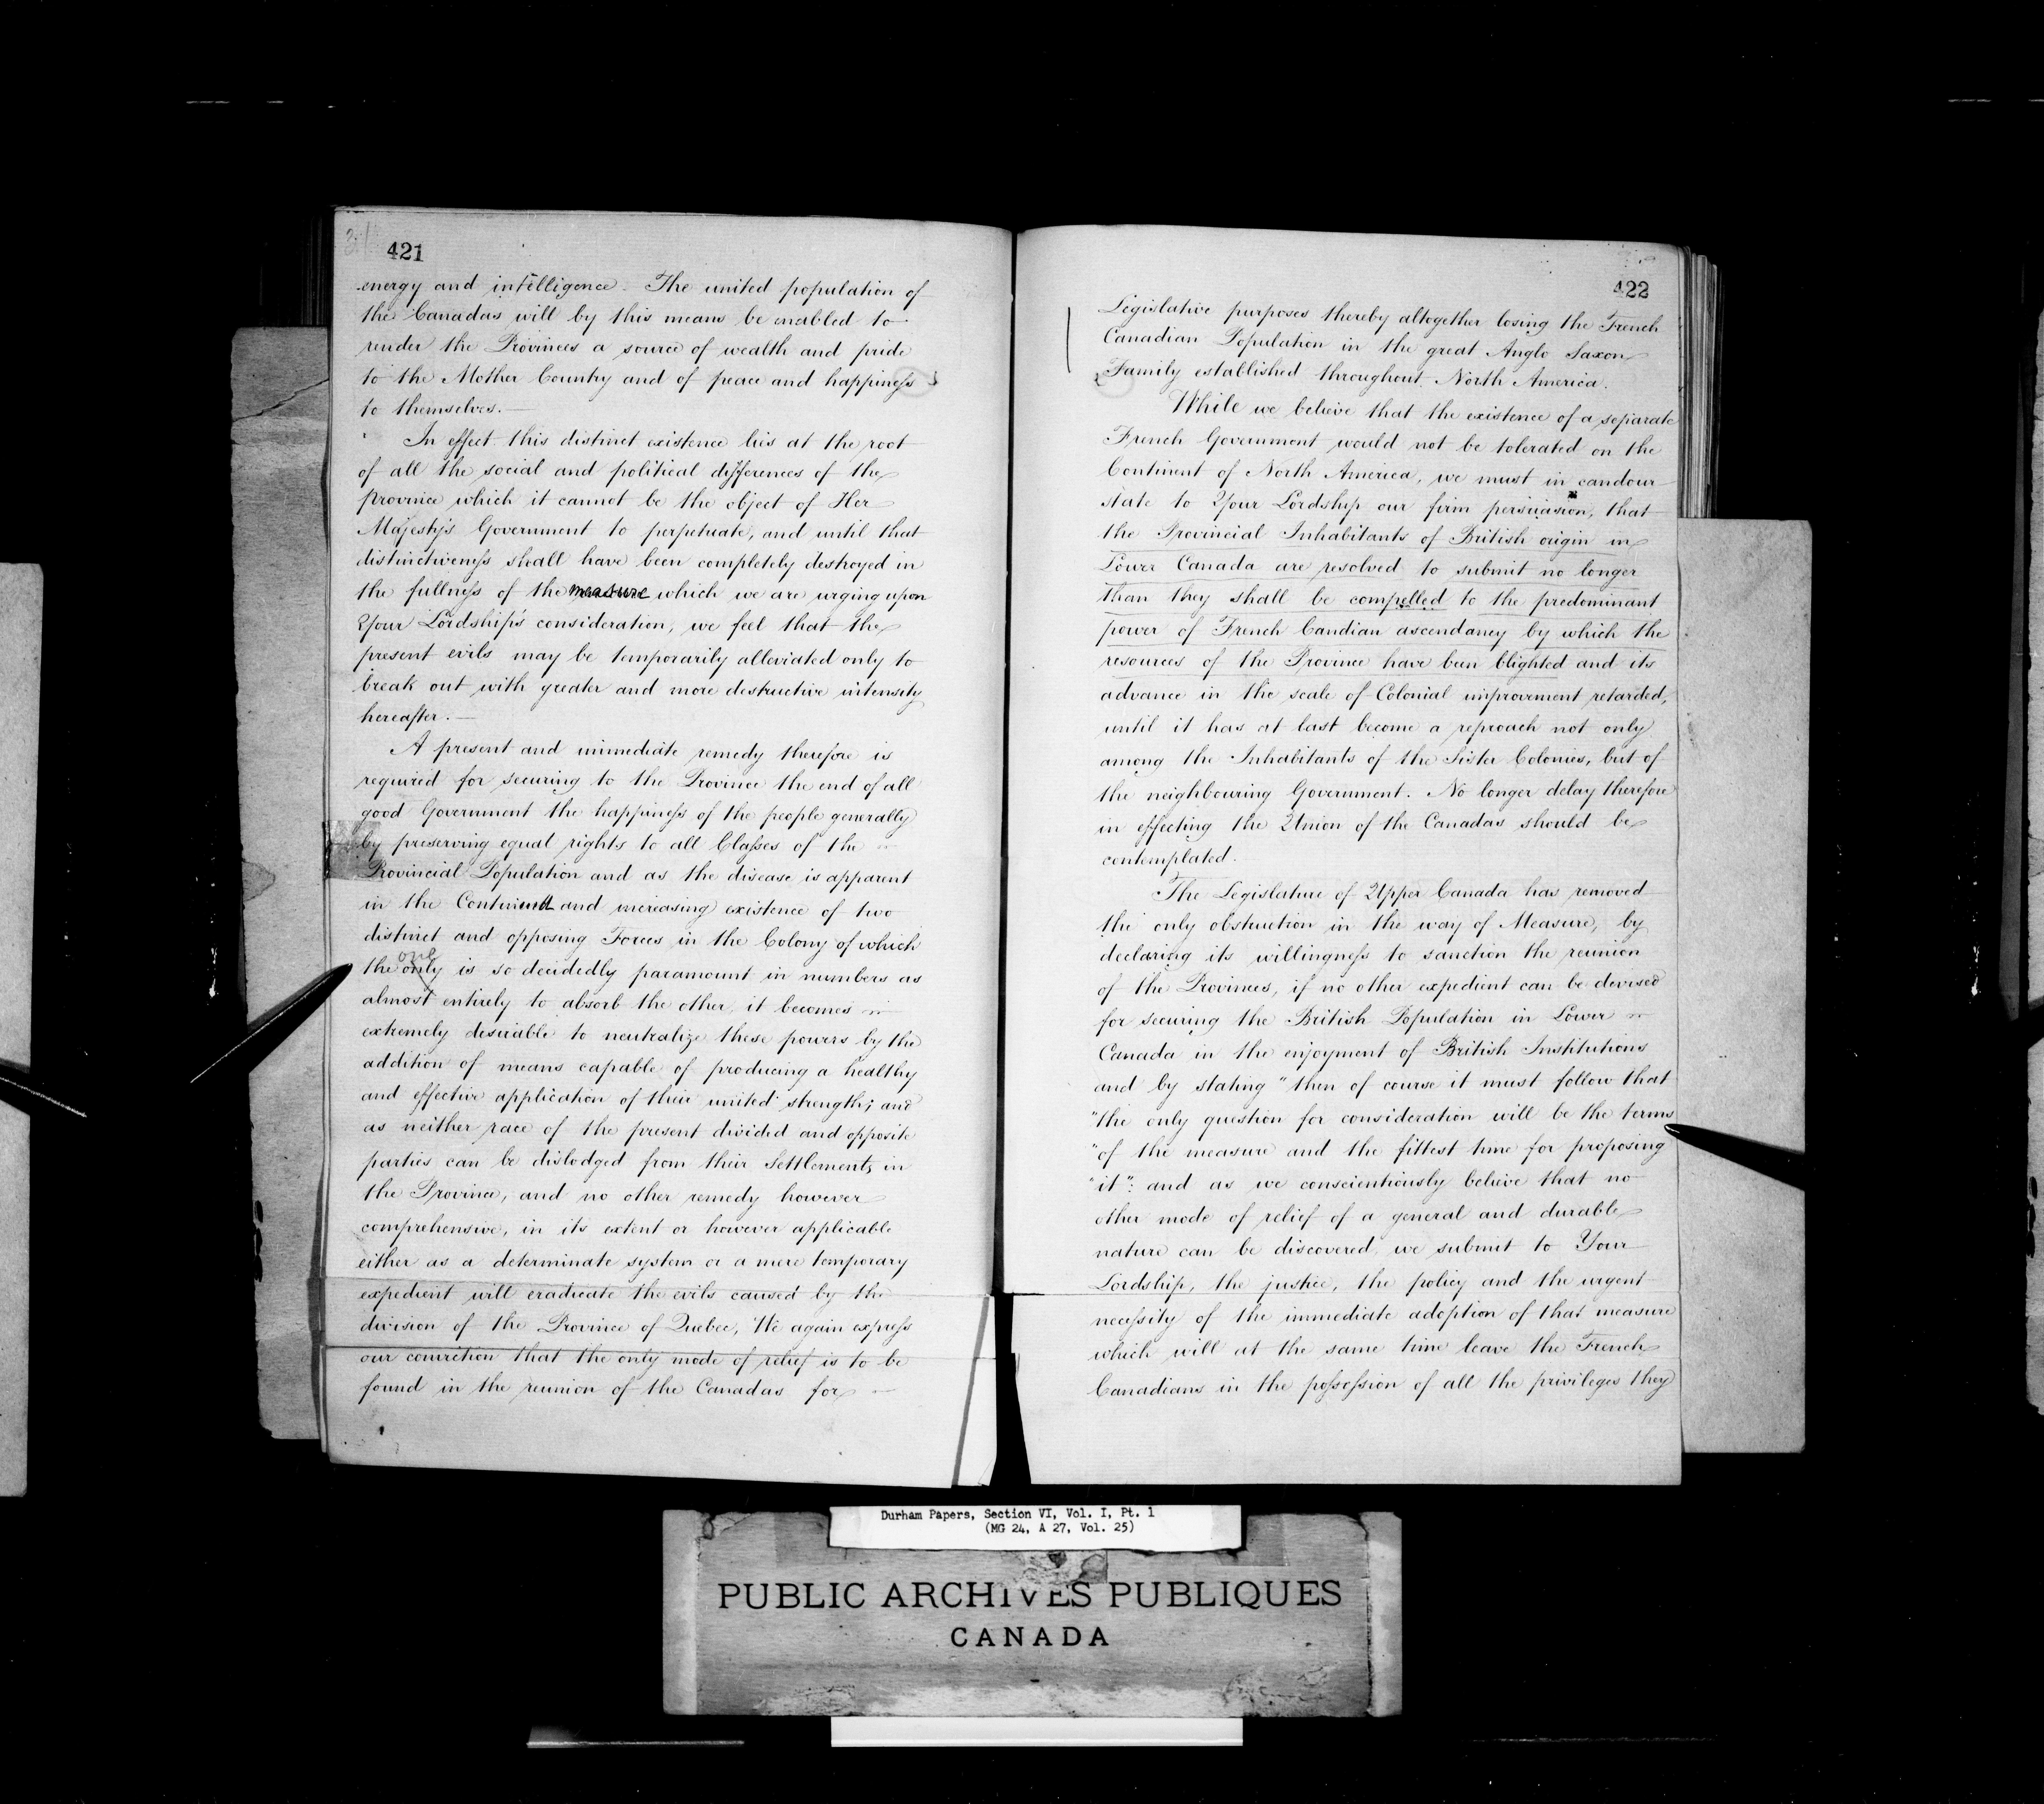 421
energy and intelligence. The united population of
the Canadas will by this means be enabled to
render the Provinces a source of wealth and pride
to the Mother Country and of peace and happiness
to themselves. —
In effect this distinct existence lies at the root
of all the social and political differences of the
province which it cannot be the object of Her
Majesty's Government to perpetuate, and until that
distinctiveness shall have been completely destroyed in
the fullness of the measure which we are urging upon
Your Lordship's consideration, we feel that the
present evils may be temporarily alleviated only to
break out with greater and more destructive intensity
hereafter. —
A present and immediate remedy therefore is
required for securing to the Province the end of all
good Government the happiness of the people generally
by preserving equal rights to all Classes of the
Provincial Population and as the disease is apparent
in the Continued and increasing existence of two
distinct and opposing Forces in the Colony of which
one
the only is so decidedly paramount in numbers as
almost entirely to absorb the other, it becomes
extremely desirable to neutralize these powers by the
addition of means capable of producing a healthy
and effective application of their united strength; and
as neither race of the present divided and opposite
parties can be dislodged from their Settlements in
the Province, and no other remedy however
comprehensive, in its extent or however applicable
either as a determinate system or a mere temporary
expedient will eradicate the evils caused by the
division of the Province of Quebec, We again express
our conviction that the only mode of relief is to be
found in the reunion of the Canadas for
422
Legislative purposes thereby altogether losing the French
Canadian Population in the great Anglo Saxon
Family established throughout North America.
While we believe that the existence of a separate
French Government would not be tolerated on the
Continent of North America, we must in candour
state to Your Lordship our firm persuasion, that
the Provincial Inhabitants of British origin in
Lower Canada are resolved to submit no longer
than they shall be compelled to the predominant
power of French Candian ascendancy by which the
resources of the Province have been blighted and its
advance in the scale of Colonial improvement retarded,
until it has at last become a reproach not only
among the Inhabitants of the Sister Colonies, but of
the neighbouring Government. No longer delay therefore
in effecting the Union of the Canadas should be
contemplated.
The Legislature of Upper Canada has removed
the only obstruction in the way of Measure, by
declaring its willingness to sanction the reunion
of the Provinces, if no other expedient can be devised
for securing the British Population in Lower
Canada in the enjoyment of British Institutions
and by stating "then of course it must follow that
"the only question for consideration will be the terms
"of the measure and the fittest time for proposing
"it": and as we conscientiously believe that no
other mode of relief of a general and durable
nature can be discovered, we submit to Your
Lordship, the justice, the policy and the urgent
necessity of the immediate adoption of that measure
which will at the same time leave the French
Canadians in the possession of all the privileges they
Durham Papers, Section VI, Vol. I, Pt. 1
(MG 24, A 27, Vol. 25)
PUBLIC ARCHIVES PUBLIQUES
CANADA